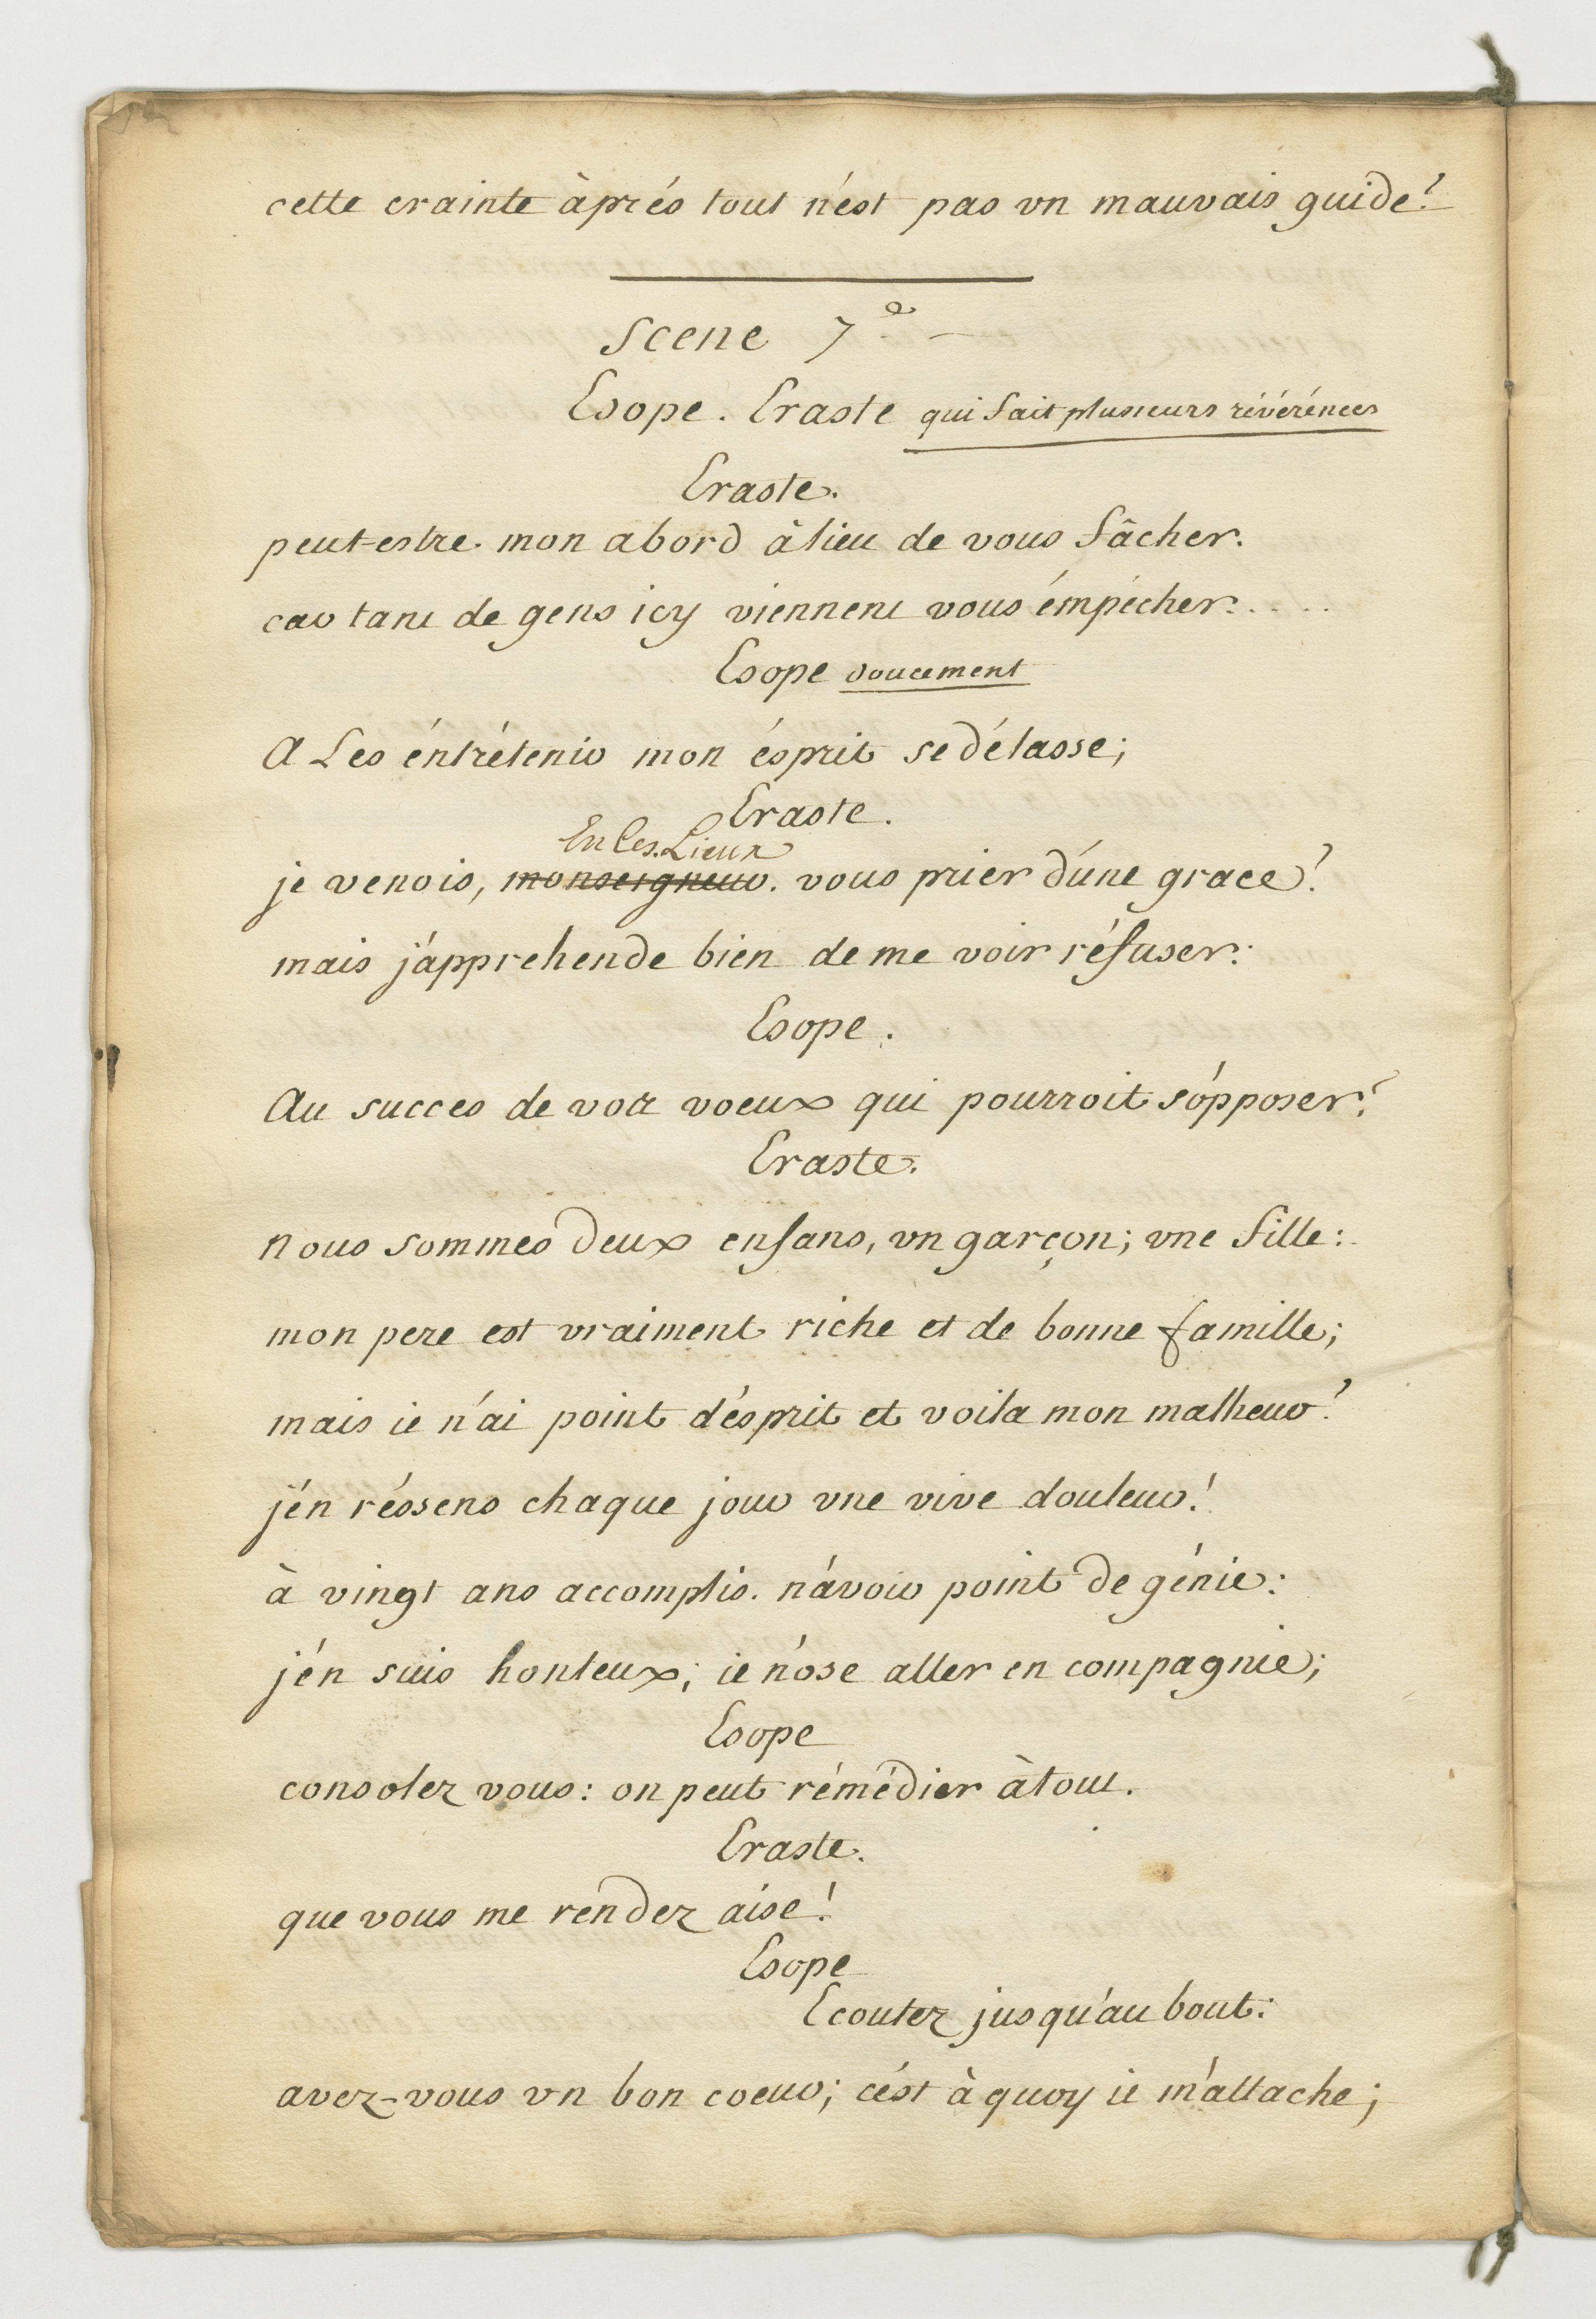 cette crainte àprés tout n'ést pas vn mauvais guide!
Scene 7.e
Esope. Eraste qui fait plusieurs révérénces
Eraste.
peut-estre mon abord à lieu de vous fâcher.
car tant de gens icy viennent vous émpécher.....
Esope doucement
A Les éntréténir mon ésprit se délasse;
Eraste.
En Ces Lieux
je venois, monseigneur. vous prier d'úne grace!
mais j'ápprehende bien de me voir réfuser:
Esope.
Au succes de vos voeux qui pourroit s'ópposer?
Eraste.
nous sommes deux enfans, vn garçon; vne fille:
mon pere est vraiment riche et de bonne famille;
mais ie n'ai point d'ésprit et voila mon malheur!
j'én réssens chaque jour vne vive douleur!
à vingt ans accomplis. n'ávoir point de génie:
j'én suis honteux; ie n'óse aller en compagnie;
Esope
consolez vous: on peut rémédier à tout.
Eraste.
que vous me rendez aise!
Esope
Ecoutez jusqu'au bout:
avez-vous vn bon coeur; c'ést à quoy ie m'áttache;